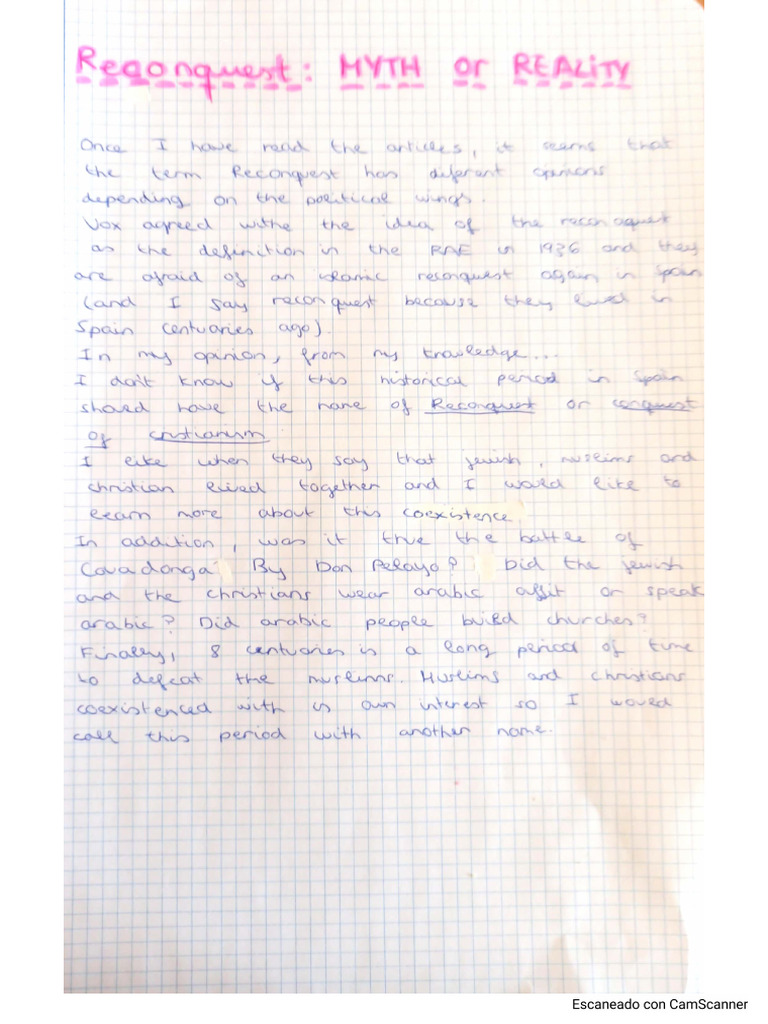 Reconquest: MYTH or REALITY
Once I have read the articles, it seems that
the term Reconquest has diferent opinions
depending on the political wings.
Vox agreed withe the idea of the reconquest
as the definition in the RAE in 1936 and they
are afraid of an islamic reconquest again in Spain
(and I say reconquest because they lived in
Spain centuaries ago).
In my opinion, from my knowledge...
I don't know if this historical period in Spain
should have the name of Reconquest or conquest
of cristianism.
I like when they say that jewish, muslims and
christian lived together and I would like to
learn more about this coexistence.
In addition, was it true the battle of
Covadonga By Don Pelayo? Did the jewish
and the christians wear arabic or speak
arabic? Did arabic people build churches?
Finally, 8 centuaries is a long period of time
to defeat the muslims. Muslims and christians
coexistenced with is own interest so I would
call this period with another name.
Escaneado con CamScanner